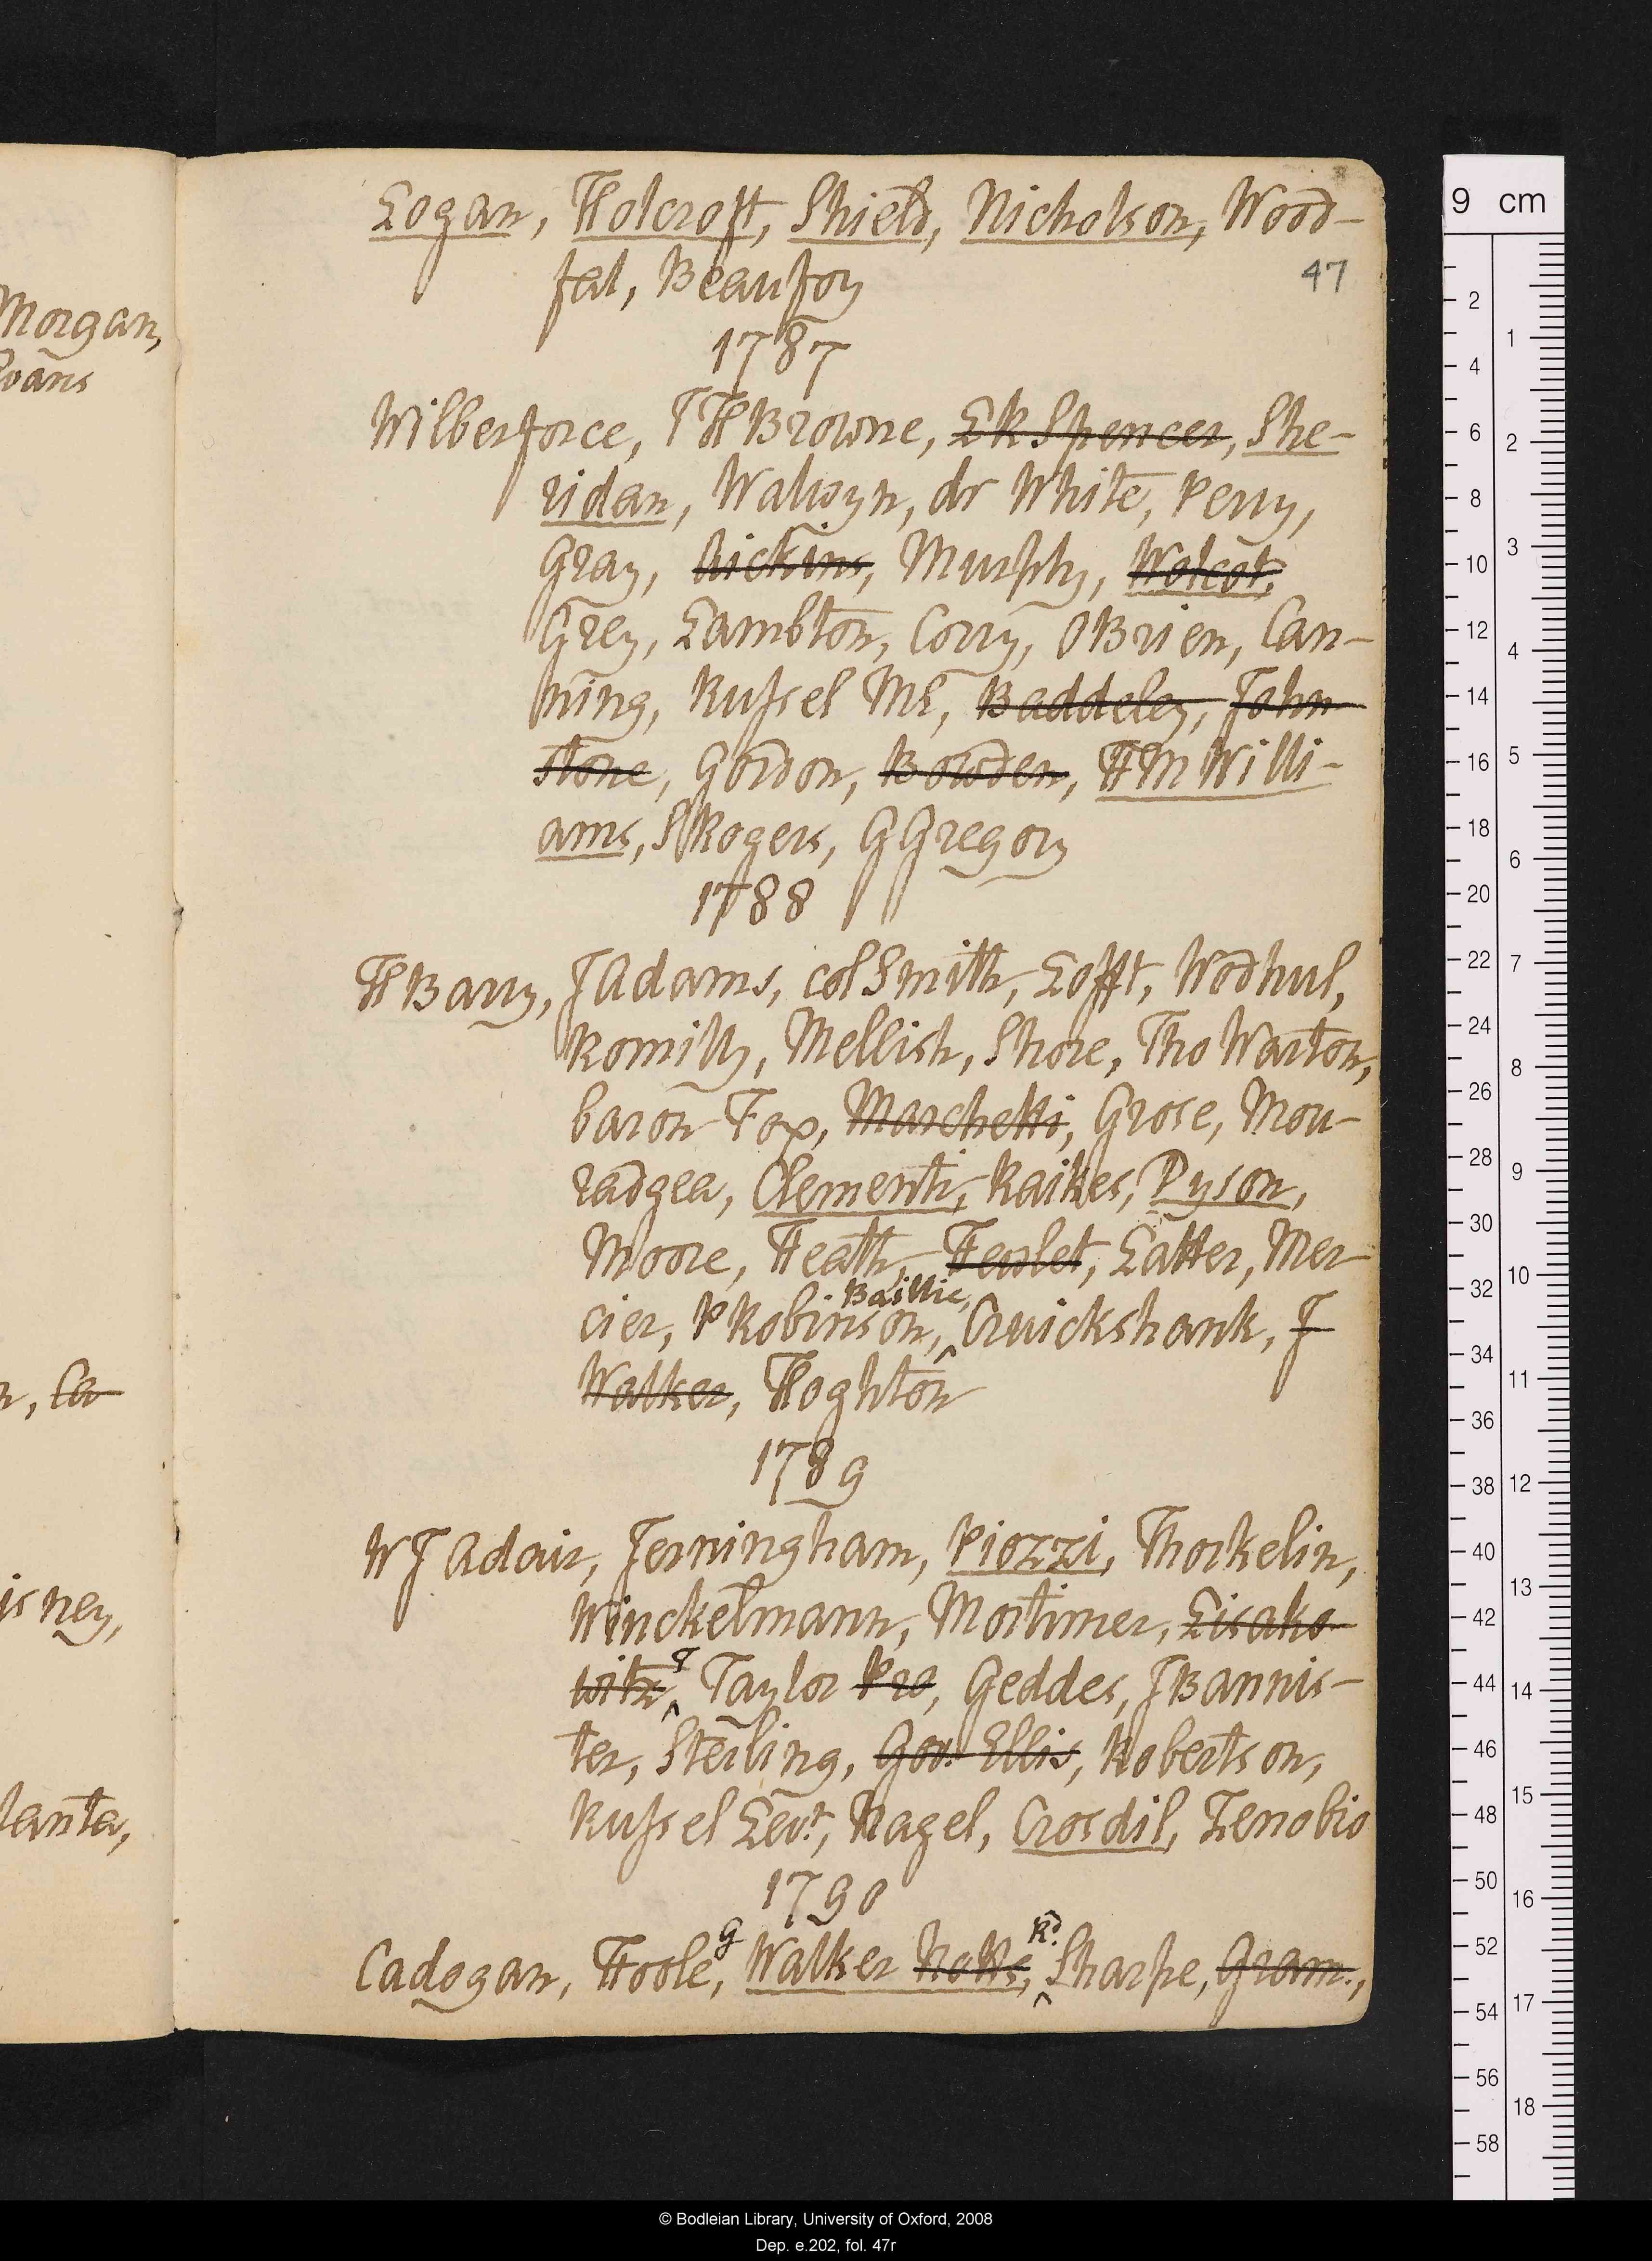 Logan, Holcroft, Shield, Nicholson, Wood-
fal, Beaufoy
47
1787
Wilberforce, I H Browne, LR Spencer, She-
ridan, Walwyn, dr White, Perry,
Gray, Aickins, Murphy, Wolcot,
Grey, Lambton, Corry, OBrien, Can-
ning, Russel ML, Baddeley, John-
stone, Gordon, Bowden, HM Willi-
ams, S Rogers, G Gregory
1788
H Barry, J Adams, col Smith, Lofft, Wodhul,
Romilly, Mellish, Shore, Tho Warton,
baron Fox, Marchetti, Grose, Mou-
radgea, Clementi, Raikes, Dyson,
Moore, Heath, Hewlet, Latter, Mer-
Baillie,
cier, P Robinson, ^ Cruickshank, J
Walker, Hoghton
1789
W J Adair, Jerningham, Piozzi, Thorkelin,
Winckelmann, Mortimer, Lisako-
witz ^ T Taylor Pro, Geddes, J Bannis-
ter, Sterling, Gov. Ellis, Robertson,
Russel Levt, Nagel, Crosdil, Zenobio
1790
Cadogan, Hoole, G Walker Notts, ^ Rd. Sharpe, Gram.,
Morgan,
vans
n, Ca-
isney,
lanta,
9 cm
2
4
6
8
10
12
14
16
18
20
22
24
26
28
30
32
34
36
38
40
42
44
46
48
50
52
54
56
58
1
2
3
4
5
6
7
8
9
10
11
12
13
14
15
16
17
18
© Bodleian Library, University of Oxford, 2008
Dep. e.202, fol. 47r